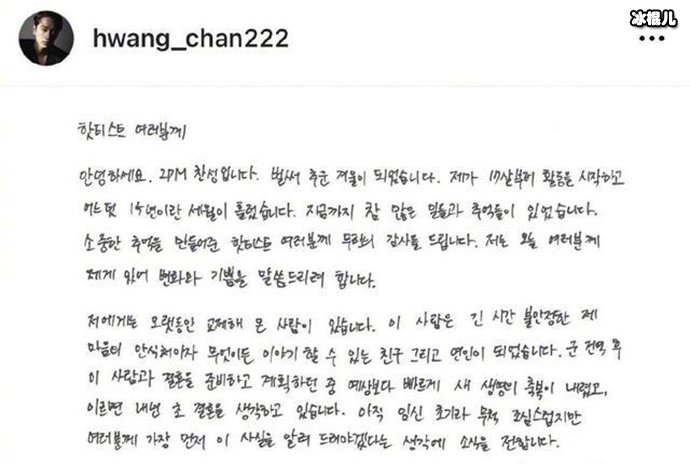 hwang_chan222
冰棍儿
핫티스트 여러분께
안녕하세요. 2PM 찬성입니다. 벌써 추운 겨울이 되었습니다. 제가 17살부터 활동을 시작하고
어느덧 15년이란 세월이 흘렀습니다. 지금까지 참 많은 일들과 추억들이 있었습니다.
소중한 추억을 만들어준 핫티스트 여러분께 무한의 감사를 드립니다. 저는 오늘 여러분께
제게 있어 변화와 기쁨을 말씀드리려 합니다.
저에게는 오랫동안 교제해 온 사람이 있습니다. 이 사람은 긴 시간 불안정한 제
마음의 안식처이자 무엇이든 이야기 할 수 있는 친구 그리고 연인이 되었습니다. 군 전역 후
이 사람과 결혼을 준비하고 계획하던 중 예상보다 빠르게 새 생명의 축복이 내렸고,
이르면 내년 초 결혼을 생각하고 있습니다. 아직 임신 초기라 무척 조심스럽지만
여러분께 가장 먼저 이 사실을 알려 드려야겠다는 생각에 소식을 전합니다.